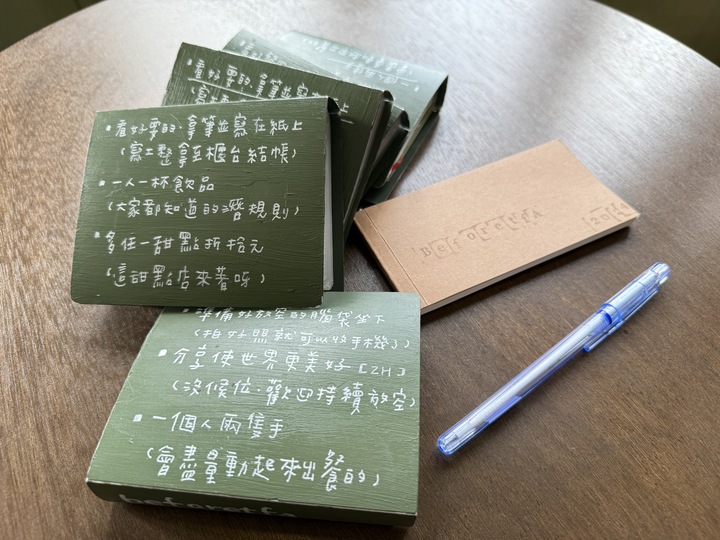 看好要的·拿筆並寫
看好要的·拿筆並寫在紙上
(寫工整拿至櫃台結帳)
一人一杯飲品
(大家都知道的潛規則)
多任一甜點折拾元
(這甜點店來著呀)
BeforetfA
準備好放空的腦袋坐下
(拍好照就可以收手機了)
分享使世界更美好[2H]
(沒候位·歡迎持續放空)
一個人兩隻手
(會盡量動起來出餐的)
beforetfa